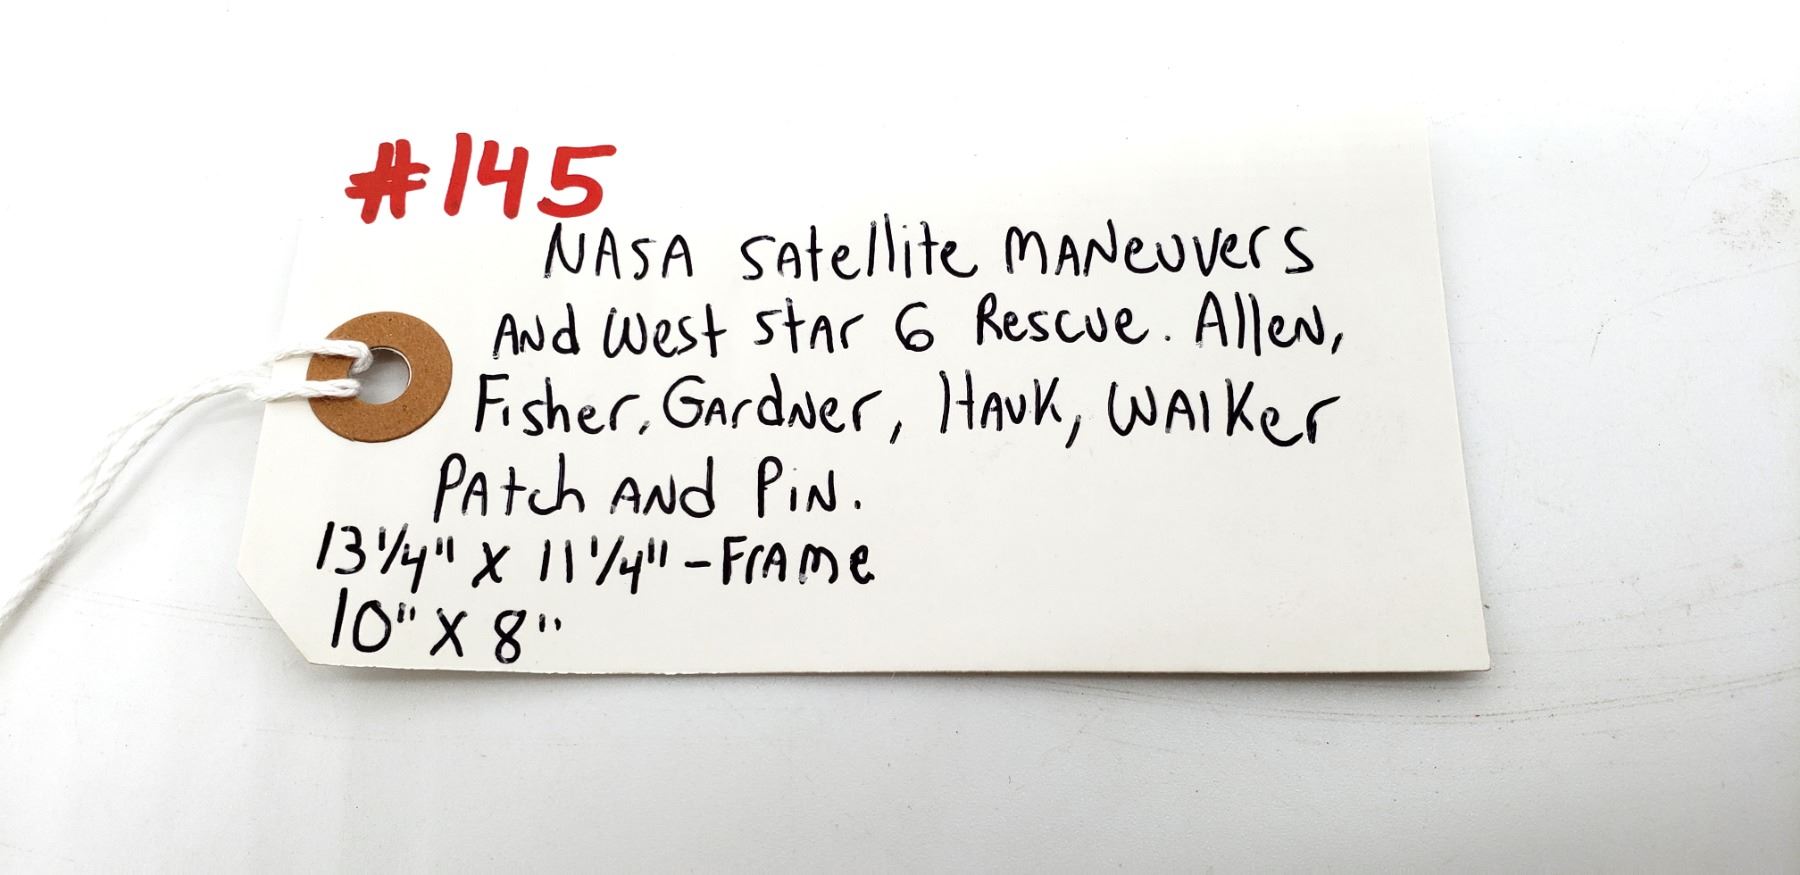 #145
NASA Satellite Maneuvers
And West Star 6 Rescue. Allen,
Fisher, Gardner, Hauk, Walker
Patch And Pin.
13 1/4" X 11 1/4" - Frame
10" X 8"